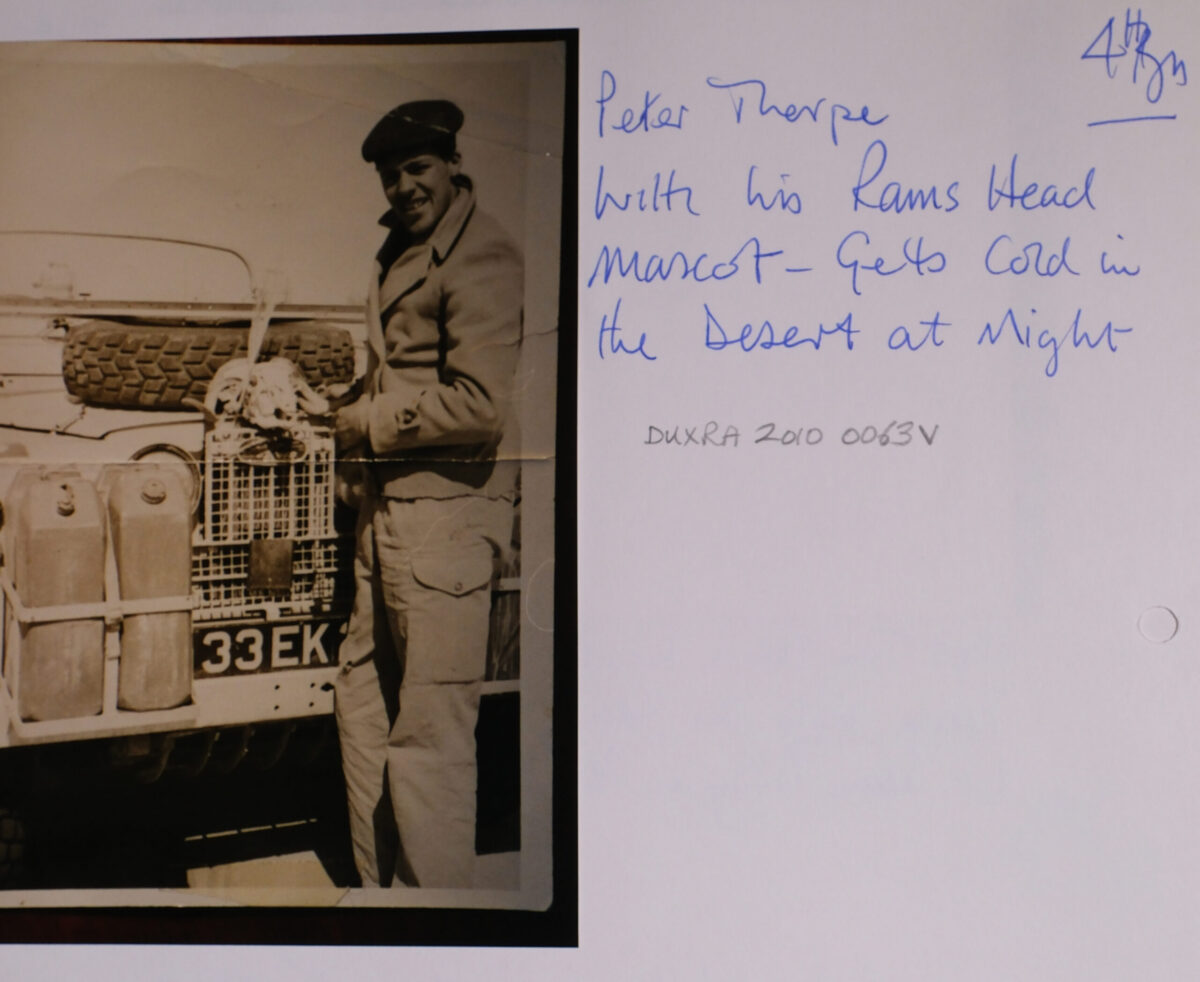 4th Bn
Peter Thorpe
with his Rams Head
Mascot - Gets Cold in
the Desert at Night
DUXRA 2010 0063V
33 EK